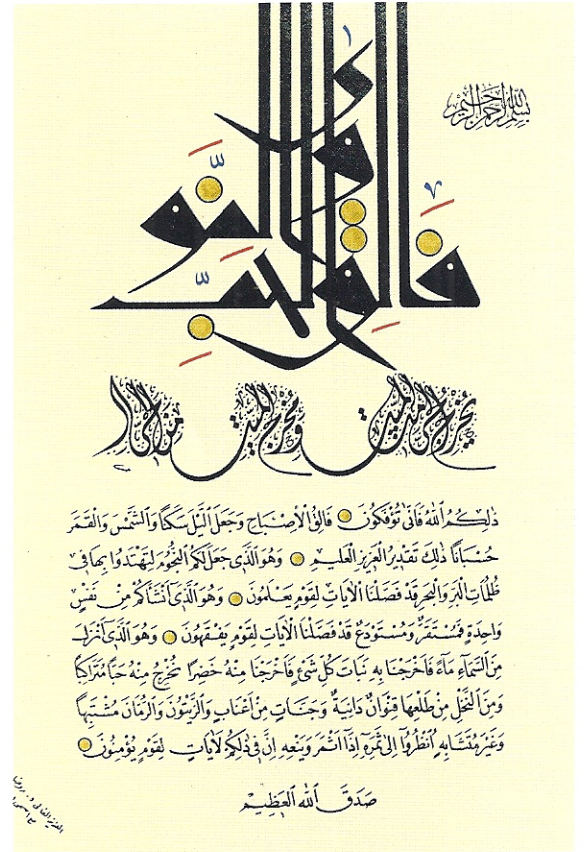 بسم الله الرحمن الرحيم
فالق الحبّ والنّوى
يخرج الحيّ من الميّت ومخرج الميّت من الحيّ
ذٰلِكُمُ اللهُ فَاَنّٰى تُؤْفَكُونَ فَالِقُ الْاِصْبَاحِ وَجَعَلَ الَّيْلَ سَكَنًا وَالشَّمْسَ وَالْقَمَرَ
حُسْبَانًا ذٰلِكَ تَقْدِيرُ الْعَزِيزِ الْعَلِيمِ وَهُوَ الَّذِى جَعَلَ لَكُمُ النُّجُومَ لِتَهْتَدُوا بِهَا فِى
ظُلُمَاتِ الْبَرِّ وَالْبَحْرِ قَدْ فَصَّلْنَا الْاٰيَاتِ لِقَوْمٍ يَعْلَمُونَ وَهُوَ الَّذِى اَنْشَاَكُمْ مِنْ نَفْسٍ
وَاحِدَةٍ فَمُسْتَقَرٌّ وَمُسْتَوْدَعٌ قَدْ فَصَّلْنَا الْاٰيَاتِ لِقَوْمٍ يَفْقَهُونَ وَهُوَ الَّذِى اَنْزَلَ
مِنَ السَّمَاءِ مَاءً فَاَخْرَجْنَا بِهِ نَبَاتَ كُلِّ شَىْءٍ فَاَخْرَجْنَا مِنْهُ خَضِرًا نُخْرِجُ مِنْهُ حَبًّا مُتَرَاكِبًا
وَمِنَ النَّخْلِ مِنْ طَلْعِهَا قِنْوَانٌ دَانِيَةٌ وَجَنَّاتٍ مِنْ اَعْنَابٍ وَالزَّيْتُونَ وَالرُّمَّانَ مُشْتَبِهًا
وَغَيْرَ مُتَشَابِهٍ اُنْظُرُوا اِلٰى ثَمَرِهِ اِذَا اَثْمَرَ وَيَنْعِهِ اِنَّ فِى ذٰلِكُمْ لَاٰيَاتٍ لِقَوْمٍ يُؤْمِنُونَ
صَدَقَ اللهُ الْعَظِيمُ